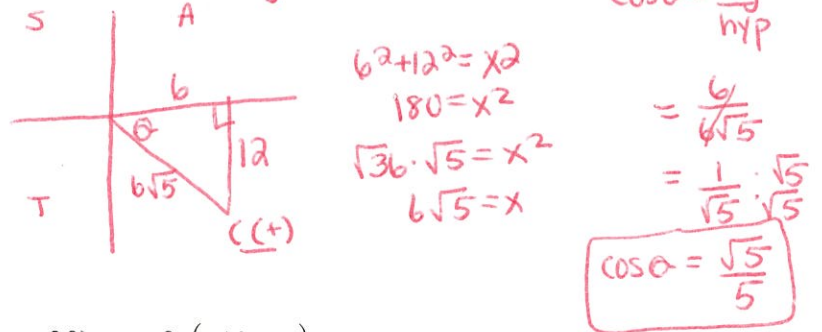 S A
6
θ
12
6√5
T
C(+)
6²+12²=x2
180=x²
√36·√5=x²
6√5=x
hyp
= 6/6√5
= 1/√5 · √5/√5
cosθ = √5/5